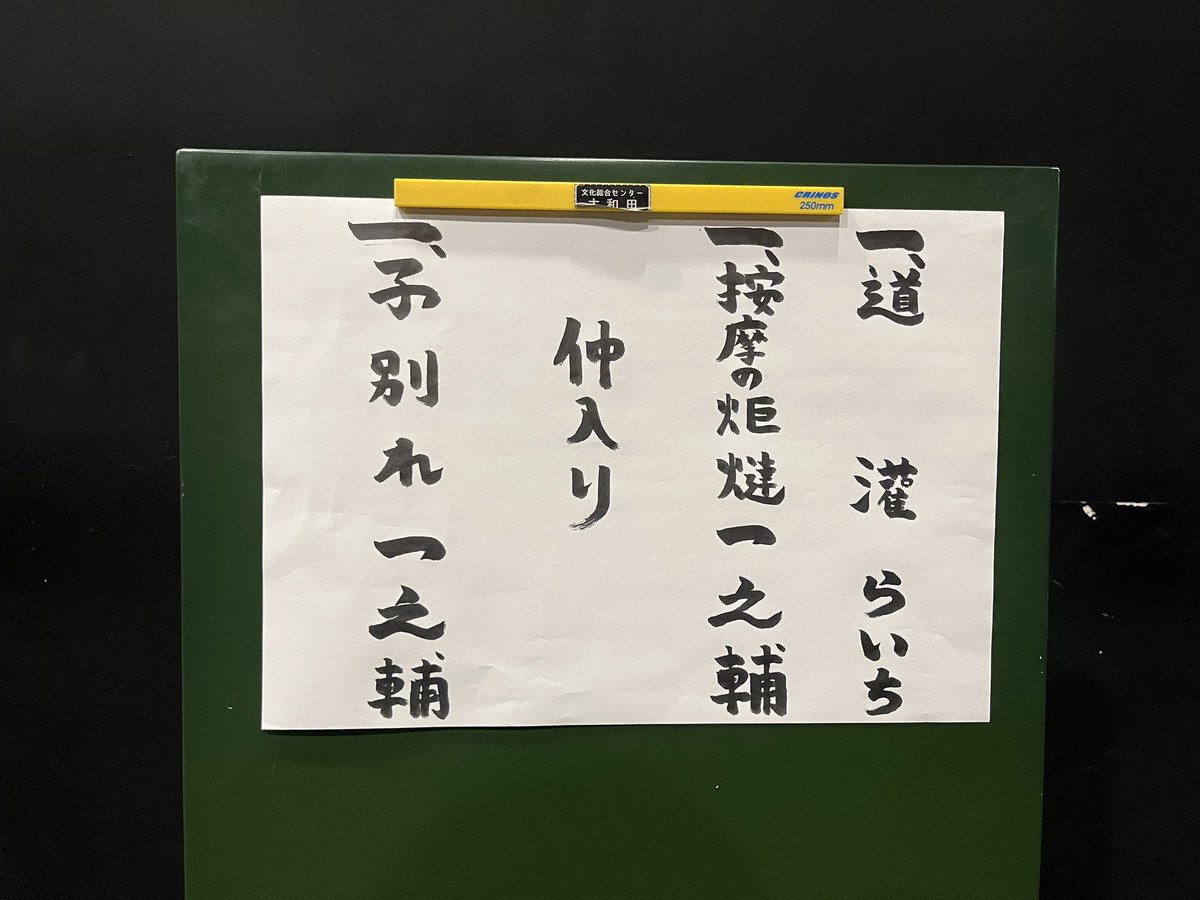 一、道灌 らいち
一、按摩の炬燵 一之輔
仲入り
一、子別れ 一之輔
文化総合センター
大和田
CRINOS
250mm